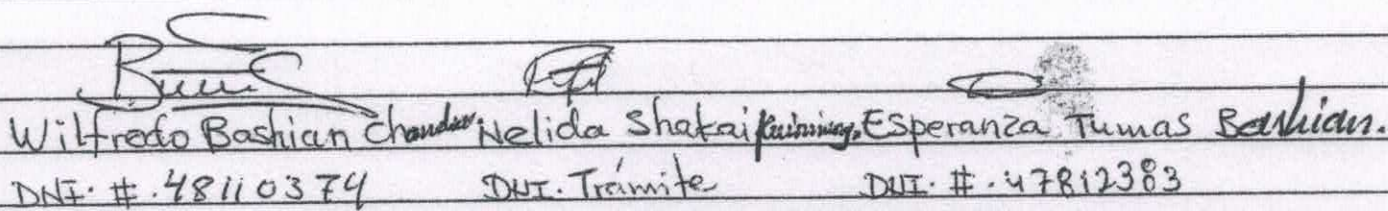 Wilfredo Bashian Nelida Shakai Esperanza Tumas Bashian.
DNI. #. 48110374 DNI. Trámite DNI. #. 47812383